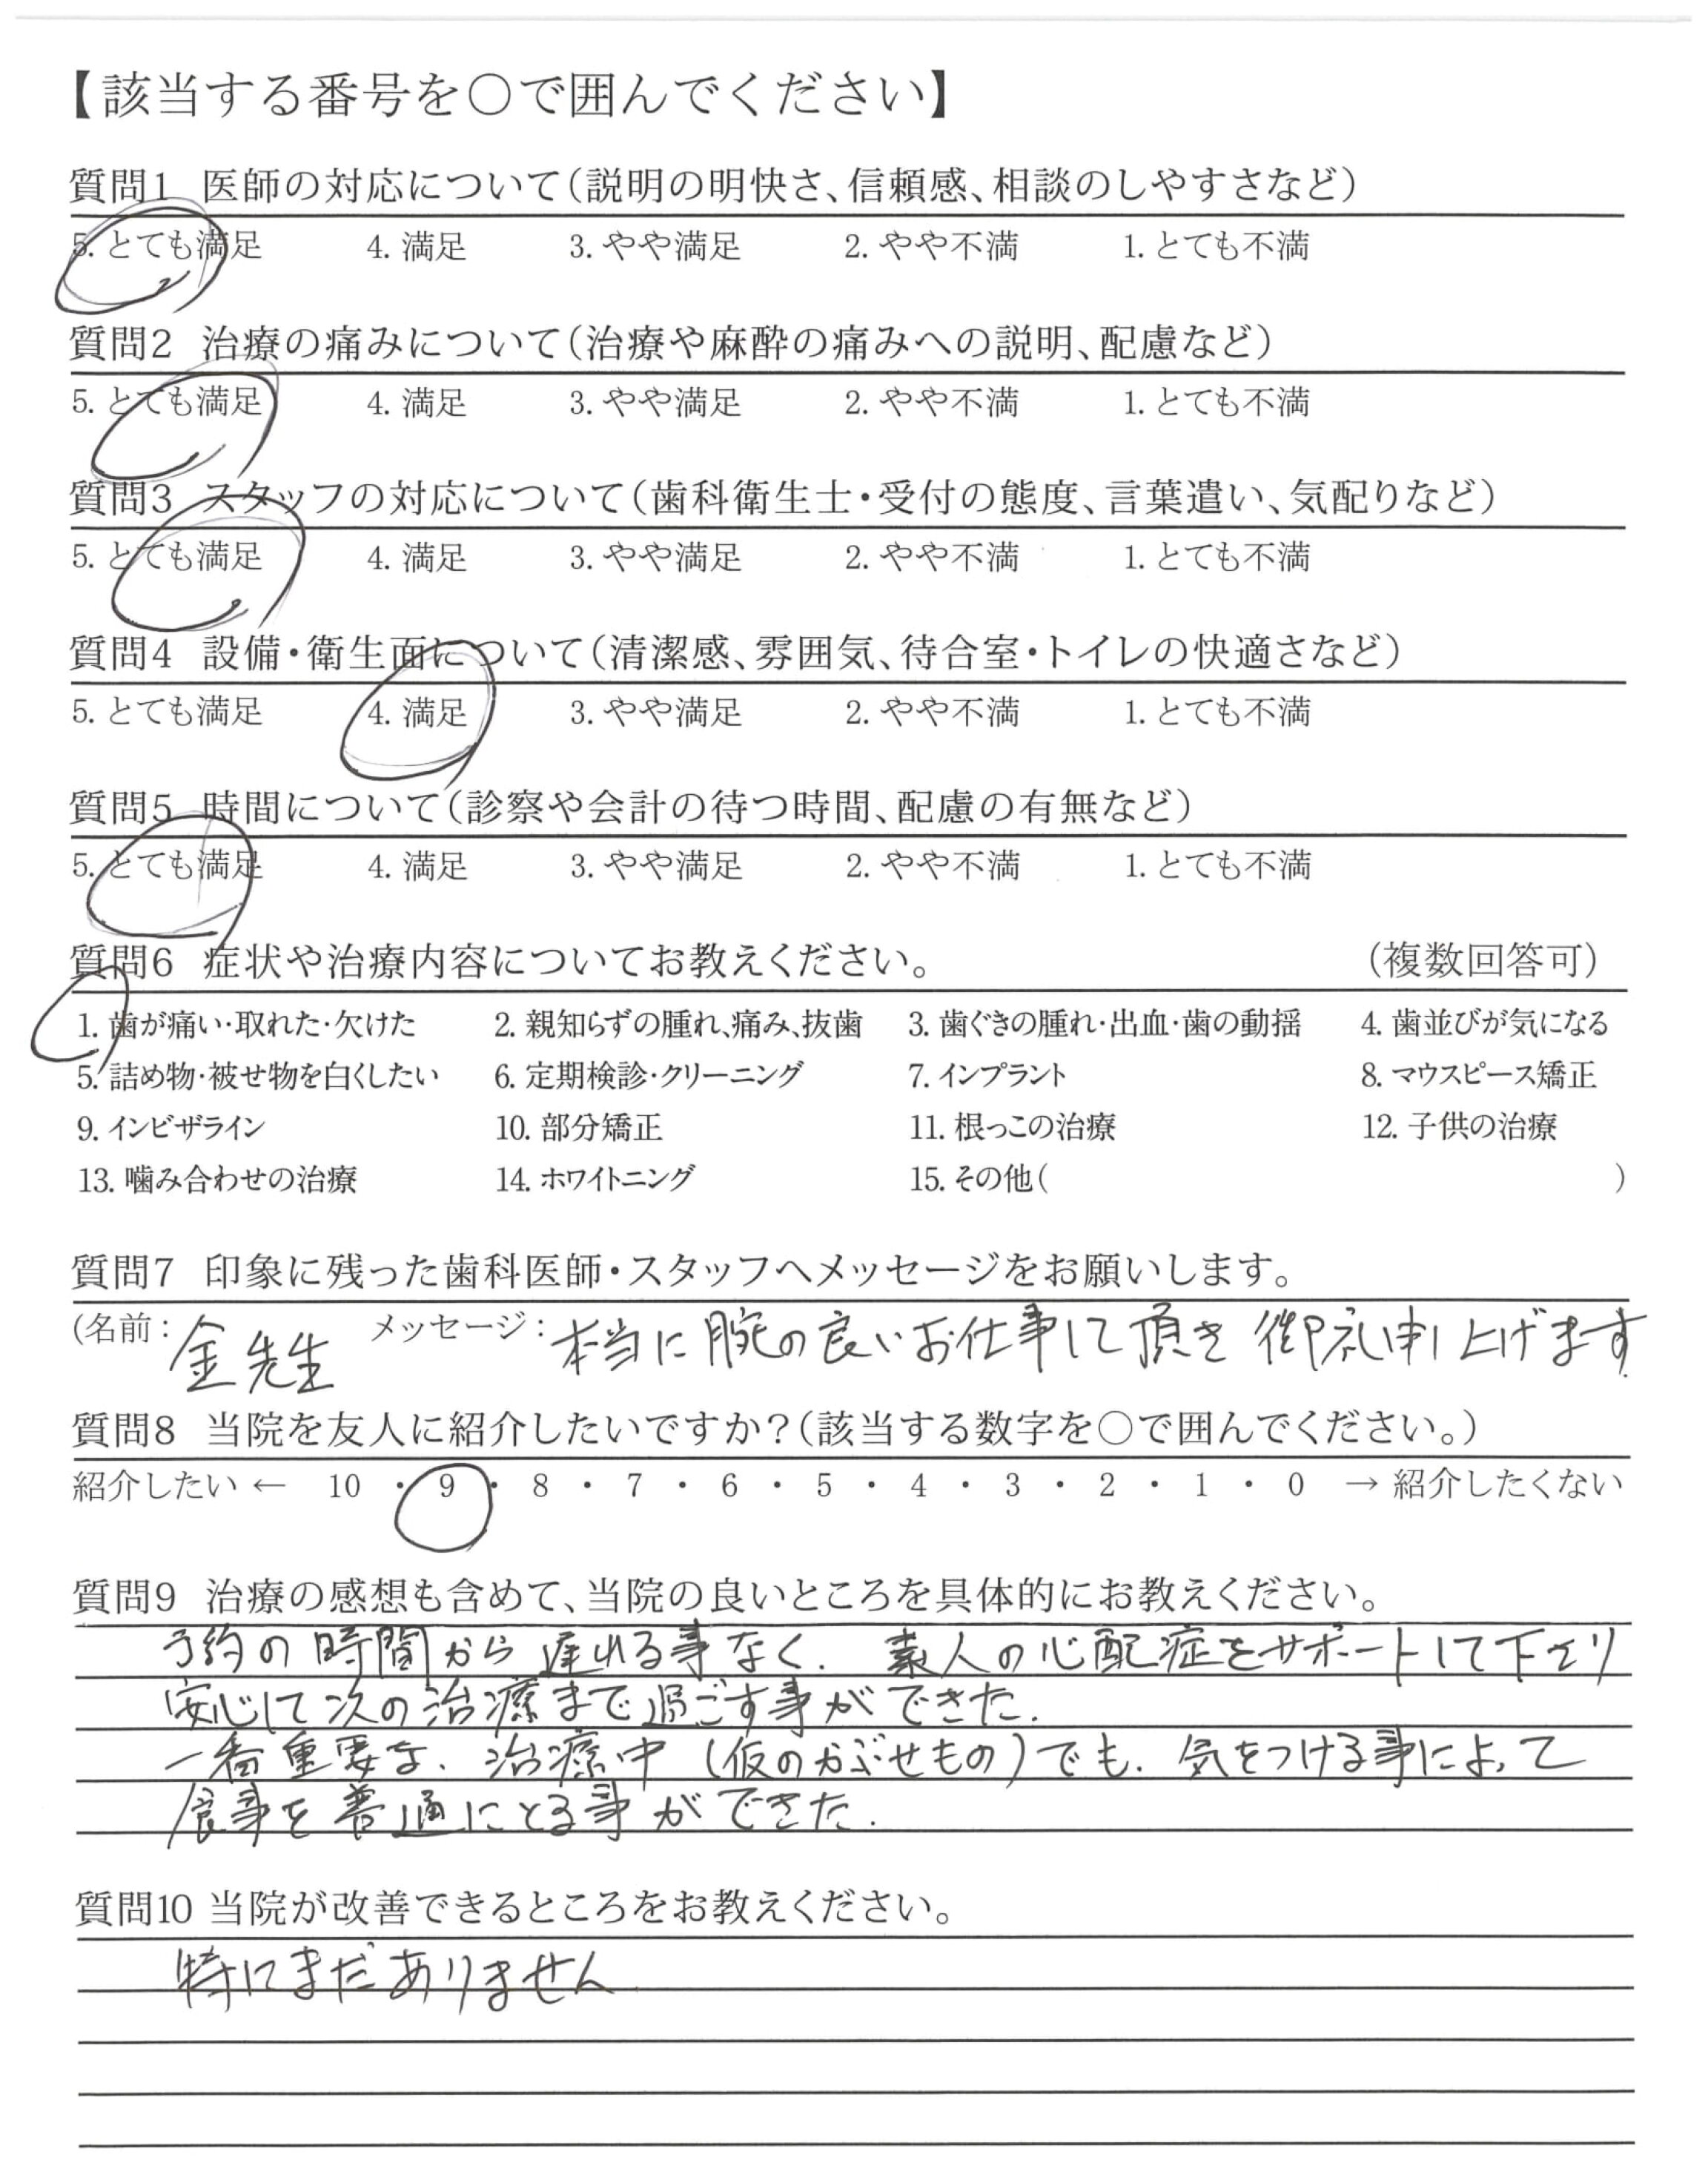 【該当する番号を〇で囲んでください】
質問1 医師の対応について(説明の明快さ、信頼感、相談のしやすさなど)
5. とても満足 4. 満足 3. やや満足 2. やや不満 1. とても不満
質問2 治療の痛みについて(治療や麻酔の痛みへの説明、配慮など)
5. とても満足 4. 満足 3. やや満足 2. やや不満 1. とても不満
質問3 スタッフの対応について(歯科衛生士・受付の態度、言葉遣い、気配りなど)
5. とても満足 4. 満足 3. やや満足 2. やや不満 1. とても不満
質問4 設備・衛生面について(清潔感、雰囲気、待合室・トイレの快適さなど)
5. とても満足 4. 満足 3. やや満足 2. やや不満 1. とても不満
質問5 時間について(診察や会計の待つ時間、配慮の有無など)
5. とても満足 4. 満足 3. やや満足 2. やや不満 1. とても不満
質問6 症状や治療内容についてお教えください。 (複数回答可)
1. 歯が痛い・取れた・欠けた 2. 親知らずの腫れ、痛み、抜歯 3. 歯ぐきの腫れ・出血・歯の動揺 4. 歯並びが気になる
5. 詰め物・被せ物を白くしたい 6. 定期検診・クリーニング 7. インプラント 8. マウスピース矯正
9. インビザライン 10. 部分矯正 11. 根っこの治療 12. 子供の治療
13. 噛み合わせの治療 14. ホワイトニング 15. その他( )
質問7 印象に残った歯科医師・スタッフへメッセージをお願いします。
(名前: 金先生 メッセージ: 本当に腕の良いお仕事して頂き 御礼申し上げます
質問8 当院を友人に紹介したいですか?(該当する数字を〇で囲んでください。)
紹介したい ← 10 ・ 9 ・ 8 ・ 7 ・ 6 ・ 5 ・ 4 ・ 3 ・ 2 ・ 1 ・ 0 → 紹介したくない
質問9 治療の感想も含めて、当院の良いところを具体的にお教えください。
予約の時間から遅れる事なく. 素人の心配症をサポートして下さり
安心して次の治療まで過ごす事ができた.
一番重要な. 治療中(仮のかぶせもの)でも. 気をつける事によって
食事を普通にとる事ができた.
質問10 当院が改善できるところをお教えください。
特にまだありません